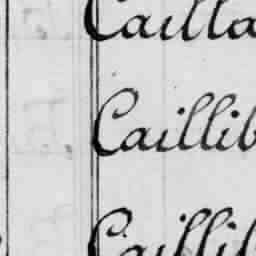 Cailla
Caillib
Caillib